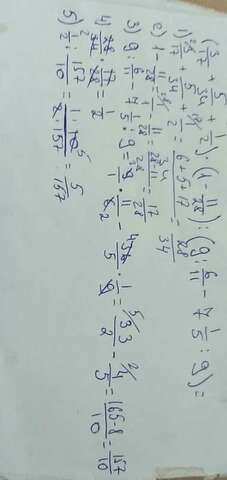 (3/17 + 5/34 + 1/2) · (1 - 11/28) : (9 : 6/11 - 7 1/5 : 9)) =
1) 3/17 + 5/34 + 1/2 = (6+5+17)/34 = 28/34
2) 1 - 11/28 = 1/1 - 11/28 = (28-11)/28 = 17/28
3) 9 : 6/11 - 7 1/5 : 9 = 9/1 · 11/6 - 36/5 · 1/9 = 33/2 - 4/5 = (165-8)/10 = 157/10
4) 28/34 · 17/28 = 1/2
5) 1/2 : 157/10 = (1·10)/(2·157) = 5/157